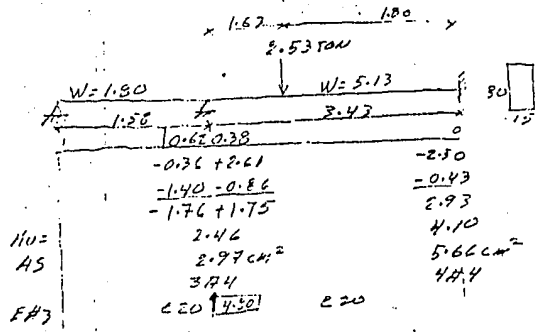 1.63 1.80
2.53 TON
W=1.80 W=5.13
1.58 3.43
30
15
0.62 0.38 0
-0.36 +2.61 -2.50
-1.40 -0.86 -0.43
-1.76 +1.75 2.93
Mu= 2.46 4.10
AS 2.97 cm² 5.66 cm²
3#4 4#4
E#3 @20 4.50 @20